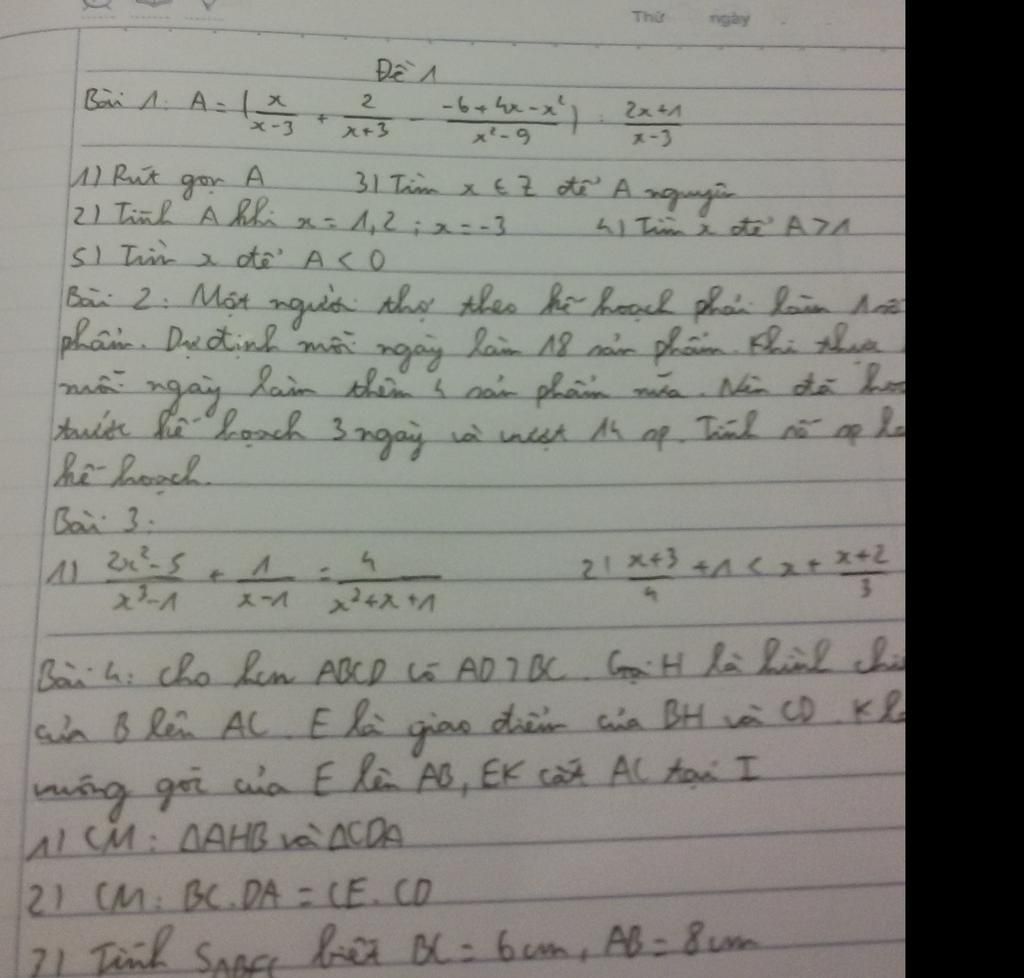 Thứ ngày
Đề 1
Bài 1: A = (x/(x-3) + 2/(x+3) - (-6+4x-x²)/(x²-9)) : (2x+1)/(x-3)
1) Rút gọn A 3) Tìm x ∈ Z để A nguyên
2) Tính A khi x = 1,2 ; x = -3 4) Tìm x để A > 1
5) Tìm x để A < 0
Bài 2: Một người thợ theo kế hoạch phải làm 1 số
phẩm. Dự định mỗi ngày làm 18 sản phẩm. Khi thực
mỗi ngày làm thêm 4 sản phẩm nữa. Nên đã
trước kế hoạch 3 ngày và vượt 14 sp. Tính số sp
kế hoạch.
Bài 3:
1) (2x²-5)/(x³-1) + 1/(x-1) = 4/(x²+x+1) 2) (x+3)/4 + 1 < x + (x+2)/3
Bài 4: Cho hcn ABCD có AD > BC. Gọi H là hình
của B lên AC. E là giao điểm của BH và CD. K
vuông góc của E lên AB, EK cắt AC tại I
1) CM: ΔAHB và ΔCDA
2) CM: BC.DA = CE.CD
3) Tính biết BC = 6cm, AB = 8cm